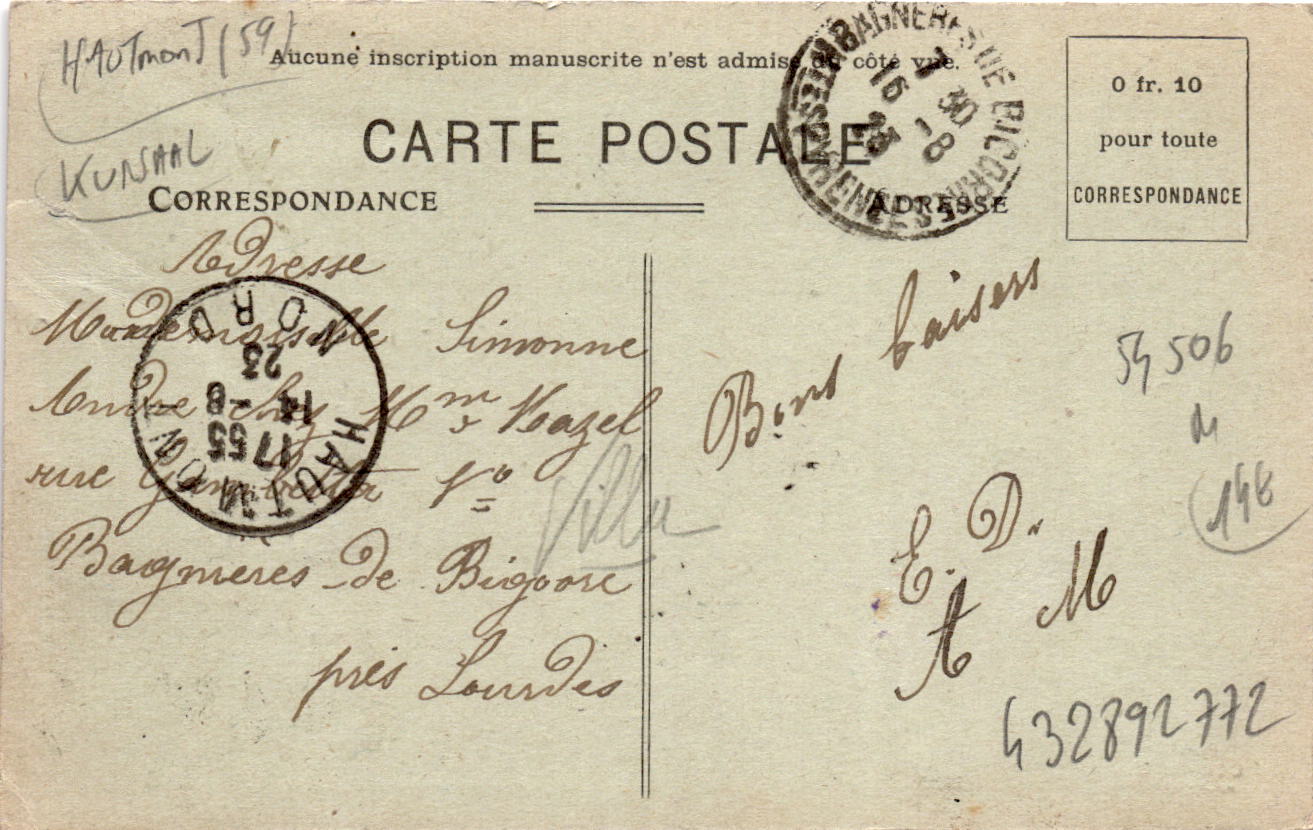 HAUTmonT (59)
Aucune inscription manuscrite n'est admise du côté vue.
KURSAAL
CARTE POSTALE
CORRESPONDANCE
ADRESSE
0 fr. 10
pour toute
CORRESPONDANCE
BAGNERES DE BIGORRE
HTES PYRENEES
1 30
16 -8
23
Adresse
Mademoiselle Simonne
chez Mme Kazel
rue Gambetta Vª
Villa
Bagneres de Bigorre
près Lourdes
HAUTMONT
NORD
17 55
14 -8
23
Bons baisers
E. D.
A M
54 506
M
148
432892772